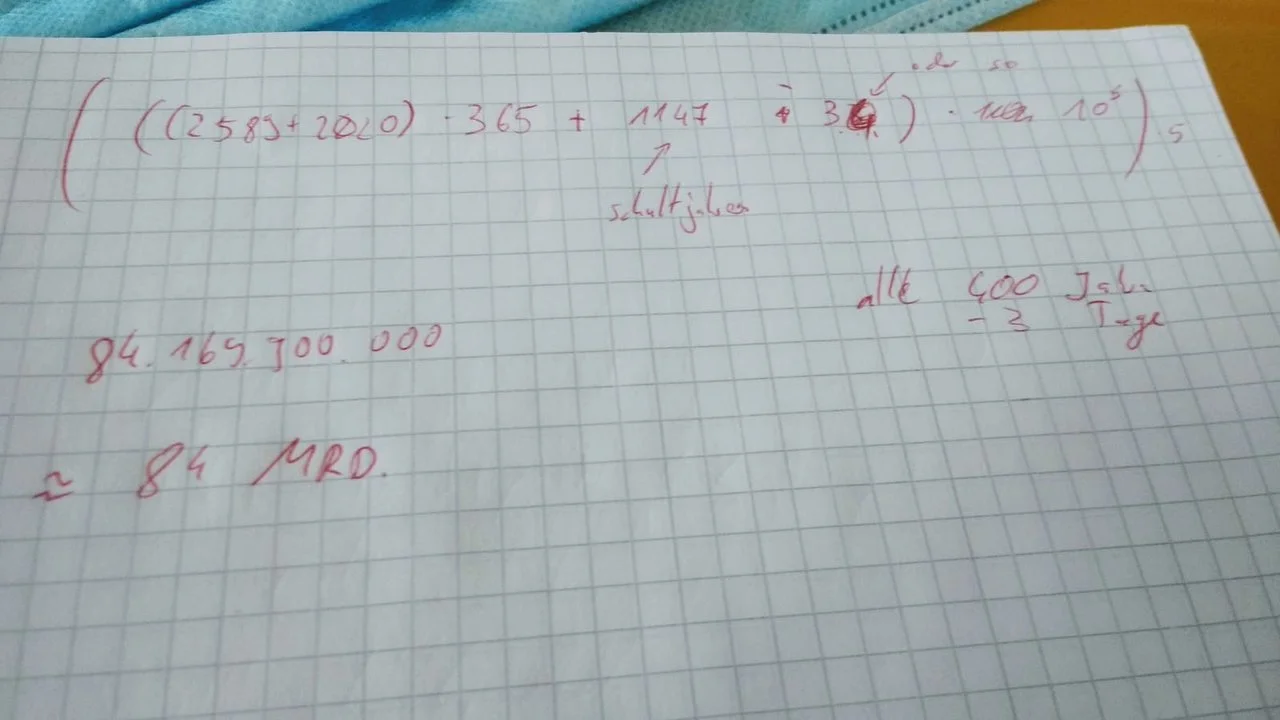 oder so
(((2589+2020) · 365 + 1147 - 34) · 10⁵) · 5
↗
schaltjahre
alle 400 Jahre
- 3 Tage
84.169.900.000
≈ 84 MRD.